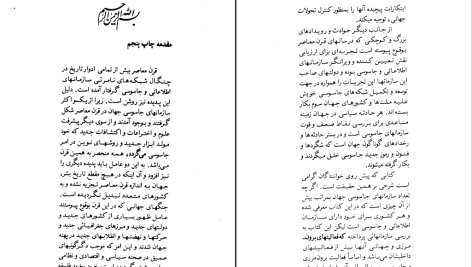 بسم الله الرحمن الرحیم
مقدمه چاپ پنجم
قرن معاصر بیش از تمامی ادوار تاریخ در
چنگال شبکه‌های نامرئی سازمانهای
اطلاعاتی و جاسوسی گرفتار آمده است. دلیل
این پدیده نیز روشن است. زیرا از یکسو اکثر
سازمانهای جاسوسی جهان در قرن معاصر شکل
گرفتند و بوجود آمدند و از سوی دیگر پیشرفت
علوم و اختراعات و اکتشافات جدید که خود
مولد ابزار جدید و روشهای نوین در امر
جاسوسی می‌گردد، همه منحصر به همین قرن
می‌باشد. به این دو عامل باید پدیده دیگری را
نیز افزود و آن اینکه در هیچ مقطع تاریخ بشر،
جهان به اندازه قرن معاصر تجزیه نشده و به
کشورهای متعدد تبدیل نگردیده است.
جنگهای جهانی که در این قرن بوقوع پیوستند
عامل ظهور بسیاری از کشورهای جدید و
دولتهای جدید و مرزهای جغرافیائی جدید و
حرکتها و نهضتها و انقلابهای جدید در پهنه
جهان شدند و این امر که موجب دگرگونیهای
عمیق در صحنه سیاسی و اقتصادی و نظامی
ابتکارات پیچیده آنها را بمنظور کنترل تحولات
جهانی، توجیه میکند.
از جانب دیگر حوادث و رویدادهای
بزرگ و کوچکی که در سالهای قرن معاصر
بوقوع پیوسته است تجربه‌ای برای ارزیابی
نقش تعیین کننده و ویرانگر سازمانهای
اطلاعاتی و جاسوسی بوده و دولتهای صاحب
این سازمانها، این تجربیات را همواره در جهت
توسعه و تکمیل شبکه‌های جاسوسی خویش
علیه ملت‌ها و کشورهای جهان سوم بکار
بسته‌اند. هر حادثه سیاسی در جهان زمینه
مساعدی برای بررسی نقاط ضعف و قوت
سازمانهای جاسوسی است و در بستر حادثه ها و
رخدادهای گوناگون جهان است که شگردها و
فنون و رموز جدید جاسوسی خلق میگردند و
بکار میروند.
کتابی که پیش روی خوانندگان گرامی
است شرحی بر همین حقیقت است. اگر چه
تعداد سازمانهای جاسوسی جهان بمراتب بیش
از آن چیزی است که در این کتاب معرفی شده
و هر کشوری برای خود دارای سازمان
اطلاعاتی و جاسوسی است لیکن این کتاب به
بررسی سازمانهائی پرداخته که فعالیتهای برون‌
مرزی و جهانی آنها بیش از فعالیتهای
داخلی میباشد و اساساً فعالیت برون‌مرزی